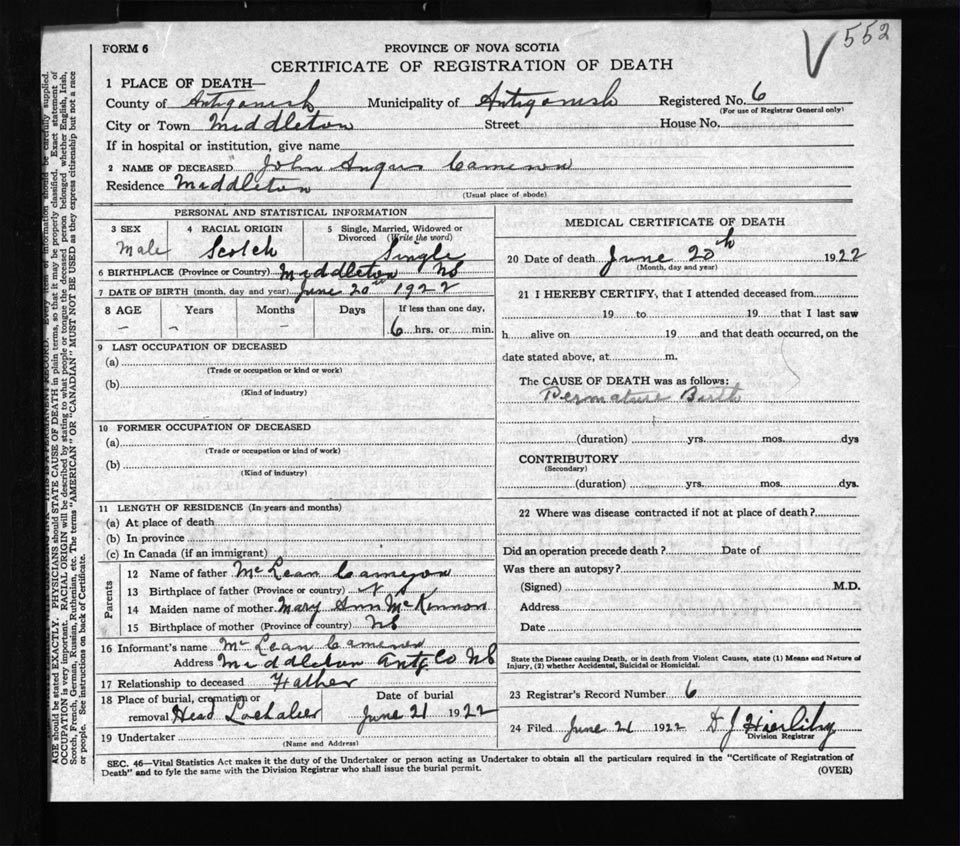 552
FORM 6
PROVINCE OF NOVA SCOTIA
CERTIFICATE OF REGISTRATION OF DEATH
1 PLACE OF DEATH—
County of Antigonish Municipality of Antigonish Registered No. 6
(For use of Registrar General only)
City or Town Middleton Street House No.
If in hospital or institution, give name
2 NAME OF DECEASED John Angus Cameron
Residence Middleton
(Usual place of abode)
PERSONAL AND STATISTICAL INFORMATION
3 SEX 4 RACIAL ORIGIN 5 Single, Married, Widowed or Divorced (Write the word)
Male Scotch Single
6 BIRTHPLACE (Province or Country) Middleton NS
7 DATE OF BIRTH (month, day and year) June 20th 1922
8 AGE Years Months Days If less than one day,
– – – 6 hrs. or min.
9 LAST OCCUPATION OF DECEASED
(a)
(Trade or occupation or kind or work)
(b)
(Kind of industry)
10 FORMER OCCUPATION OF DECEASED
(a)
(Trade or occupation or kind of work)
(b)
(Kind of industry)
11 LENGTH OF RESIDENCE (In years and months)
(a) At place of death
(b) In province
(c) In Canada (if an immigrant)
Parents
12 Name of father McLean Cameron
13 Birthplace of father (Province or country) N S
14 Maiden name of mother Mary Ann McKinnon
15 Birthplace of mother (Province of country) NS
16 Informant's name McLean Cameron
Address Middleton Antg Co NS
17 Relationship to deceased Father
18 Place of burial, cremation or removal Head Lochaber Date of burial June 21 1922
19 Undertaker
(Name and Address)
MEDICAL CERTIFICATE OF DEATH
20 Date of death June 20th 1922
(Month, day and year)
21 I HEREBY CERTIFY, that I attended deceased from
19 to 19 that I last saw
h alive on 19 and that death occurred, on the
date stated above, at m.
The CAUSE OF DEATH was as follows:
Permature Birth
(duration) yrs. mos. dys
CONTRIBUTORY
(Secondary)
(duration) yrs. mos. dys.
22 Where was disease contracted if not at place of death?
Did an operation precede death? Date of
Was there an autopsy?
(Signed) M.D.
Address
Date
State the Disease causing Death, or in death from Violent Causes, state (1) Means and Nature of
Injury, (2) whether Accidental, Suicidal or Homicidal.
23 Registrar's Record Number 6
24 Filed June 21 1922 D J Hierlihy
Division Registrar
SEC. 46—Vital Statistics Act makes it the duty of the Undertaker or person acting as Undertaker to obtain all the particulars required in the "Certificate of Registration of
Death" and to fyle the same with the Division Registrar who shall issue the burial permit.
(OVER)
AGE should be stated EXACTLY. PHYSICIANS should STATE CAUSE OF DEATH in plain terms, so that it may be properly classified. Exact statement of
OCCUPATION is very important. RACIAL ORIGIN will be described by stating to what people or tongue the deceased person belonged whether English, Irish,
Scotch, French, German, Russian, Ruthenian, etc. The terms "AMERICAN" OR "CANADIAN" MUST NOT BE USED as they express citizenship but not a race
or people. See instructions on back of Certificate.